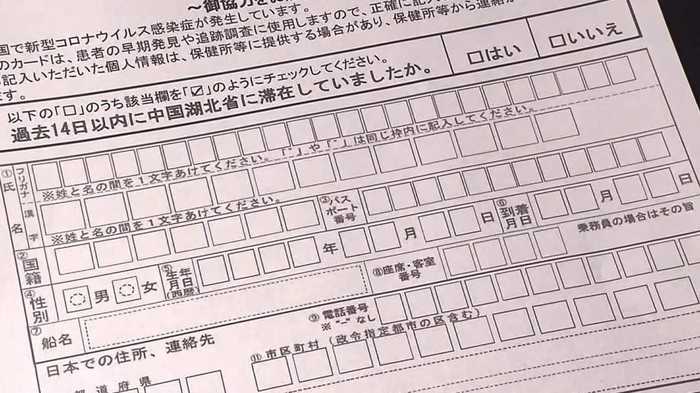 ～御協力をお
国で新型コロナウイルス感染症が発生しています。
のカードは、患者の早期発見や追跡調査に使用しますので、正確に記入
記入いただいた個人情報は、保健所等に提供する場合があり、保健所等から連絡が
ます。
以下の「□」のうち該当欄を「☑」のようにチェックしてください。
過去14日以内に中国湖北省に滞在していましたか。
□はい
□いいえ
①氏名
フリガナ
※姓と名の間を1文字あけてください。「゛」や「゜」は同じ枠内に記入してください。
漢字
※姓と名の間を1文字あけてください。
②国籍
③パスポート番号
④性別
男
女
⑤生年月日(西暦)
年
月
日
⑥到着月日
月
日
⑦船名
⑧座席・客室番号
乗務員の場合はその旨
⑨電話番号
※ "-" なし
日本での住所、連絡先
都道府県
⑪市区町村(政令指定都市の区含む)